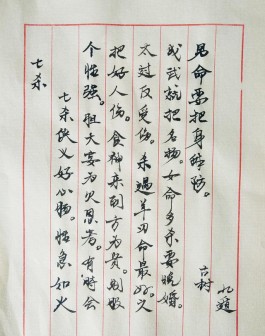 七杀
七杀侠义好心肠。性急如火
个性强。胆大妄为欠思考。有时会
把好人伤。食神来制方为贵。制服
太过反受伤。杀遇羊刃命最好。文
成武就把名扬。女命多杀要晚婚。
命要把身防。